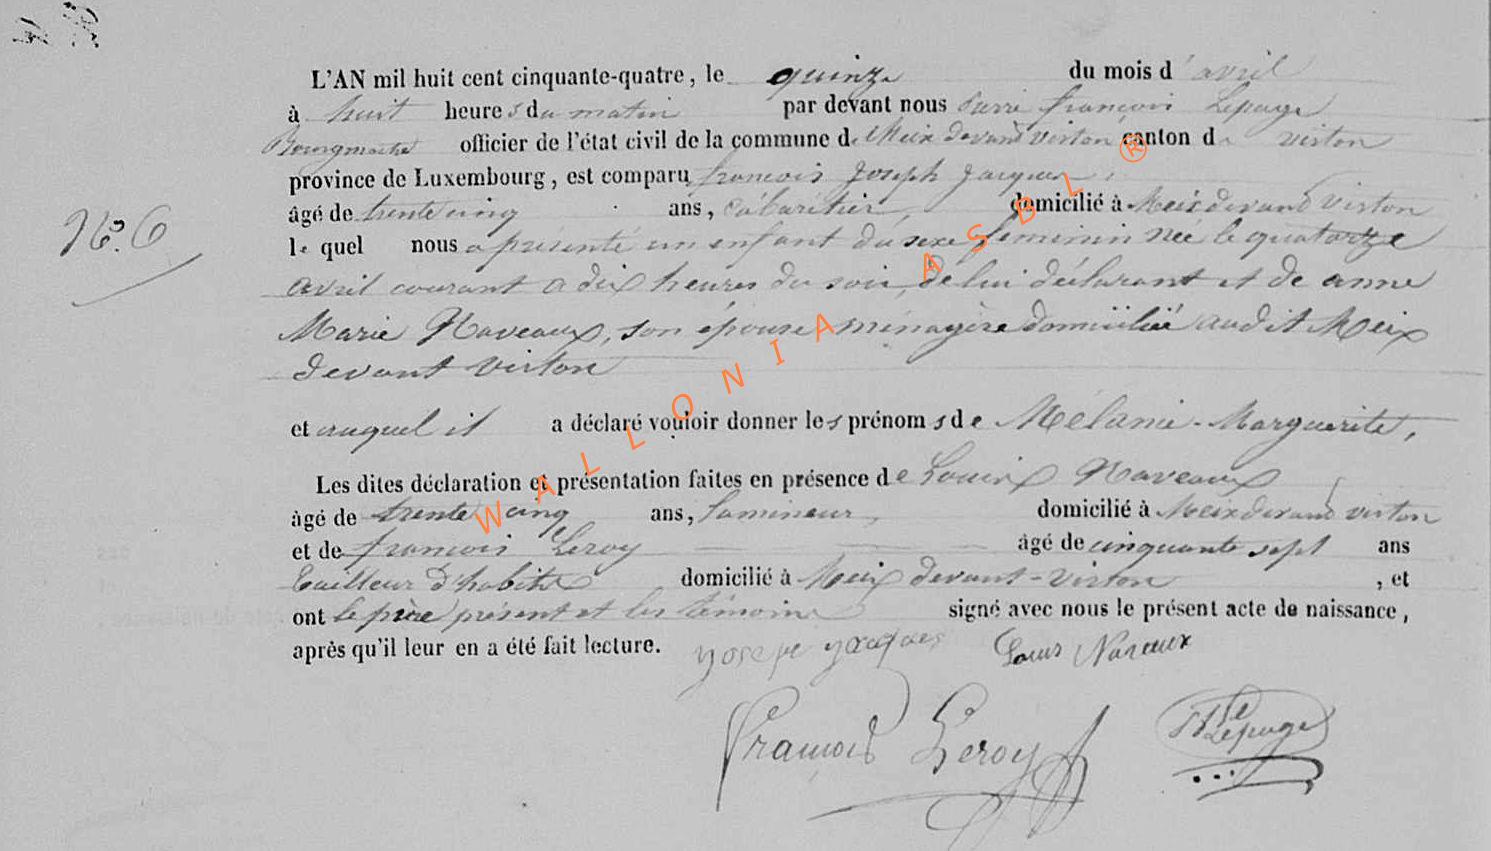 L'AN mil huit cent cinquante-quatre, le quinze du mois d'avril
à huit heures du matin par devant nous pierre françois Lepage
Bourgmestre officier de l'état civil de la commune de Meix devant virton canton de virton
province de Luxembourg, est comparu francois Joseph Jacques,
âgé de trente cinq ans, Cabaretier, domicilié à Meix devant Virton
N°. 6
le quel nous a présenté un enfant du sexe feminin née le quatorze
avril courant a dix heures du soir, de lui déclarant et de anne
Marie Naveaux, son épouse ménagère domiciliée audit Meix
devant virton
et auquel il a déclaré vouloir donner les prénoms de Mélanie-Marguerite,
Les dites déclaration et présentation faites en présence de Louis Naveaux
âgé de trente cinq ans, Lamineur, domicilié à Meix devant virton
et de francois Leroy âgé de cinquante sept ans
tailleur d'habits domicilié à Meix devant-virton, et
ont le père présent et les témoins signé avec nous le présent acte de naissance,
après qu'il leur en a été fait lecture.
yosepe yacques Louis Naveaux
François Leroy Lepage
WALLONIA ASBL ®